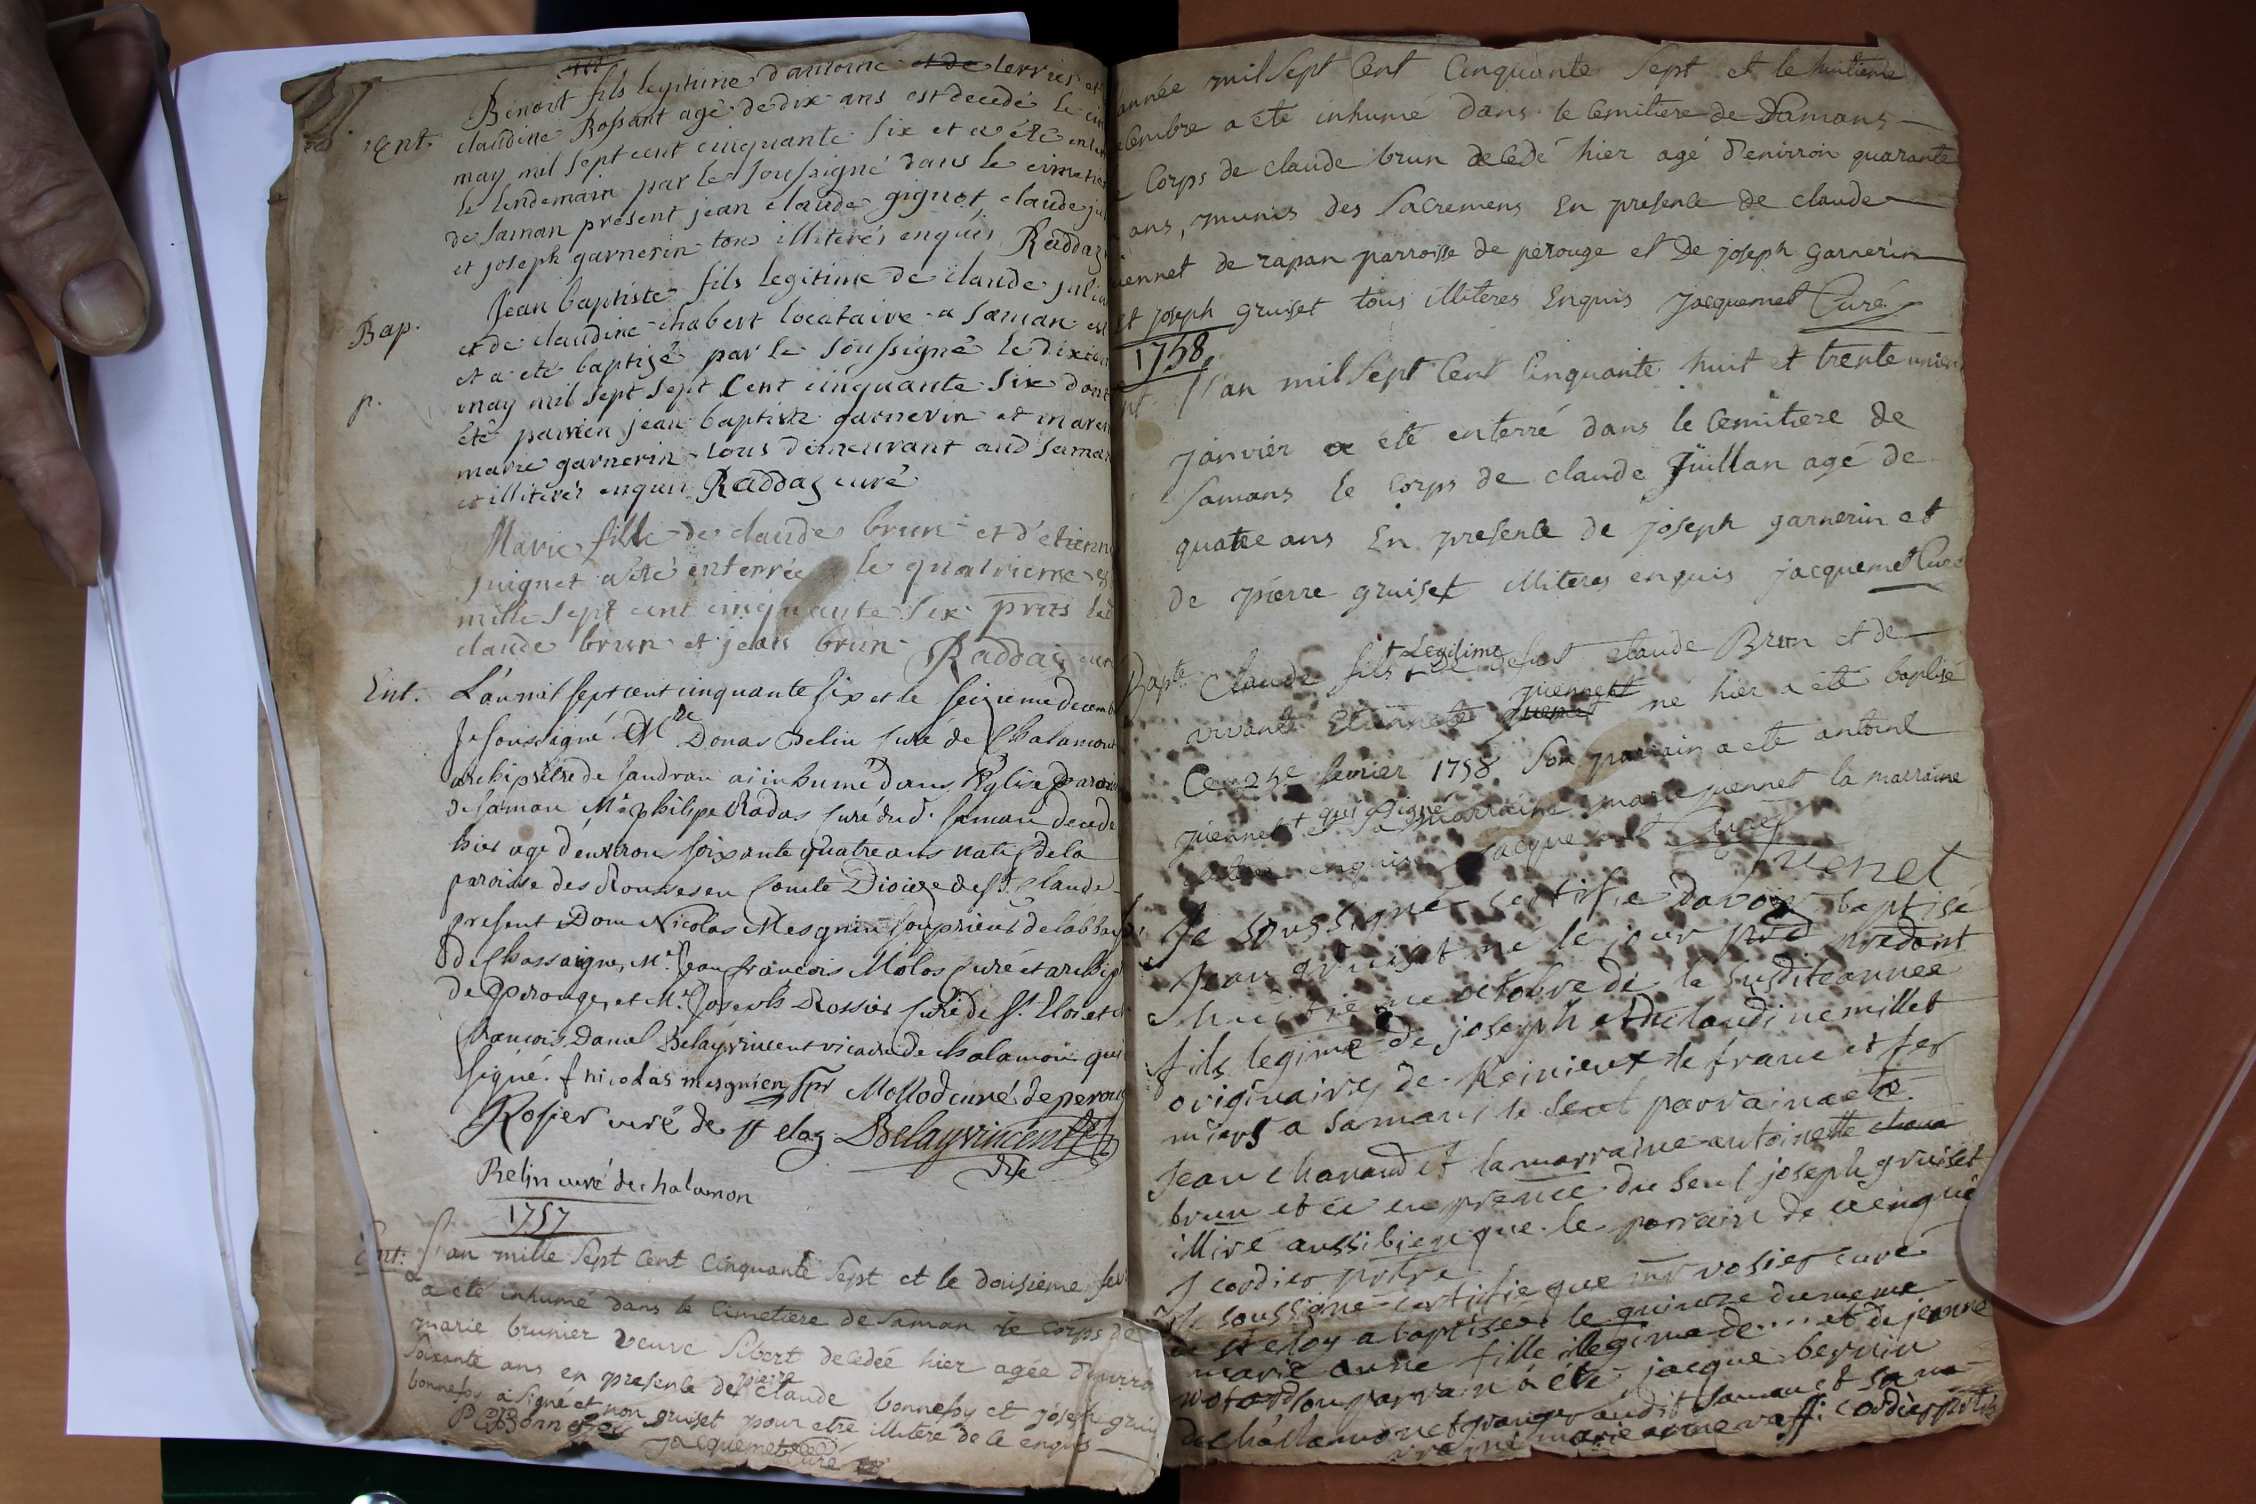 Benoit fils legitime d'antoine et de terrier et
Ent. claudine Rossant agé de dix ans est decedé le
may mil sept cent cinquante six et a été
le lendemain par le soussigné dans le
de saman present jean claude gignot claude
et joseph garnerin tous illiterés enquis Raddaz
Bap. Jean baptiste fils legitime de claude
et de claudine chabert locataire a saman
et a eté baptisé par le soussigné le
p. may mil sept sept Cent cinquante six dont
été parrien jean baptiste garnerin et
marie garnerin tous demeurant aud saman
et illiterés enquis Raddaz curé
Marie fille de claude brun et d'etienne
juignet a été enterrée le quatrieme
mille sept cent cinquante six pnts
claude brun et jean brun Raddaz
Ent. L'an mil sept cent cinquante six et le seizieme
Je soussigné Donas Belin curé de Chalamont
archiprêtre de sandran ai inhumé dans l'Eglise
de saman Mre philipe Radas curé dud. saman decede
hier agé d'environ soixante quatre ans natif de la
paroisse des Rousses en Comté Dioceze de St. Claude
present Dom Nicolas Mesgnien souprieur de
de Chassaigne, Mr. Jean francois Molos curé et
de perouge, et Mr. Joseph Rossier curé de St. Eloi et
francois Daniel Delayvincent vicaire de chalamon qui
signé. f nicolas mesgnien Mollod curé de
Rosier curé de st eloy Delayvincent
Vre
Belin curé de chalamon
1757
Ent. L'an mille sept Cent Cinquante sept et le dousieme
a eté inhumé dans le Cimetiere de Saman le corps de
marie brunier veuve sibert decedée hier agée
soixante ans en presence de pierre claude bonnefoy et joseph
bonnefoy a signé et non gruiset pour etre illitere de ce enquis
P Bonnefoy jacquemet Curé
année mil sept Cent Cinquante sept et le huitieme
a été inhumé dans le Cemitiere de Samans
Corps de claude brun decedé hier agé d'enirron quarante
ans, munis des Sacremens En presence de claude
de rapan parroisse de perouge et de joseph Garnerin
et joseph gruiset tous illiteres Enquis jacquemet Curé
1758
L'an mil sept Cent Cinquante huit et trente
janvier a eté enterré dans le Cemitiere de
Samans le Corps de claude Juillan agé de
quatre ans En presence de joseph garnerin et
de pierre gruiset illiteres enquis jacquemet Curé
Bapte Claude fils Legitime de claude Brun et de
vivante Etiennete juennet ne hier a eté baptisé
Ce fevrier 1758 Son parrain a eté antoine
juennet qui signé et sa marraine marie juennet la marraine
enquis jacquemet Curé
juenet
Je soussigné certifie davoir baptisé
jean gruiset né le jour prd
octobre de la susditeannee
fils legime de joseph et de claudine millet
originaires de Reinieux de france et fer
miers a samans le seul parrain a eté
jean chanaud et la marraine antoinette
brun et ce en prence du seul joseph gruiset
illiré aussibien que le parrain de ce enquis
J cordier prêtre
Je soussigné certifie que mr rosier curé
de st eloy a baptisee le quinze du meme
marie anne fille illegime de .... et de jeanne
son parrain a été jacque bernin
saman et sa ma
marie anne cordier